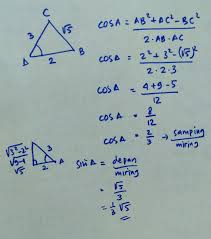 C
3
√5
A
2
B
COS A = AB² + AC² - BC² / 2. AB. AC
COS A = 2² + 3² - (√5)² / 2. 2. 3
COS A = 4+9-5 / 12
COS A = 8 / 12
COS A = 2 / 3 → samping / miring
√3²-2²
√9-4
√5
3
2
A
sin A = depan / miring
= √5 / 3
= 1/3 √5